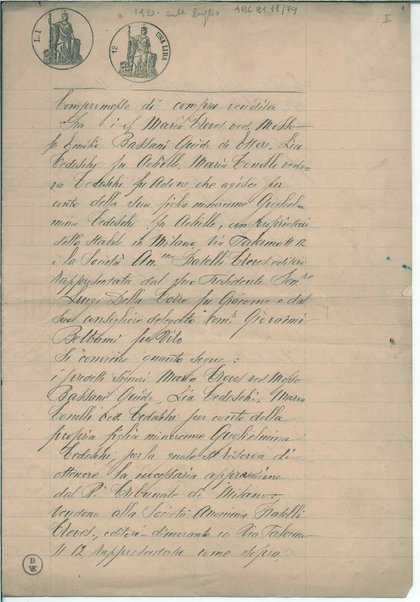 1920 - ante luglio ABC 81 11/79
I
1
L. 1
12 UNA LIRA
Compromesso di compra vendita
Fra i sig. Maria Treves ved. Mosso
fu Emilio Bassani Guido di Ettore, Lia
Tedeschi fu Achille, Maria Tonilli vedo-
va Tedeschi fu Adone, che agisce per
conto della sua figlia minorenne Guglielmi-
nia Tedeschi fu Achille, comproprietari
dello Stabile in Milano, Via Palermo N. 12
e la Società An.ma Fratelli Treves editori
rappresentata dal suo Presidente Sen.re
Luigi Della Torre fu Giacomo e dal
suo consigliere delegato Com. Giovanni
Beltrami fu Vito
Si conviene quanto segue:
i predetti signori Maria Treves ved. Mosso
Bassani Guido, Lia Tedeschi, Maria
Tonilli ved. Tedeschi per conto della
propria figlia minorenne Guglielmina
Tedeschi, per la quale si riserva di
ottenere la necessaria approvazione
dal R. Tribunale di Milano,
vendono alla Società Anonima Fratelli
Treves, editori dimorante in Via Palermo
N. 12 rappresentata come sopra,
B